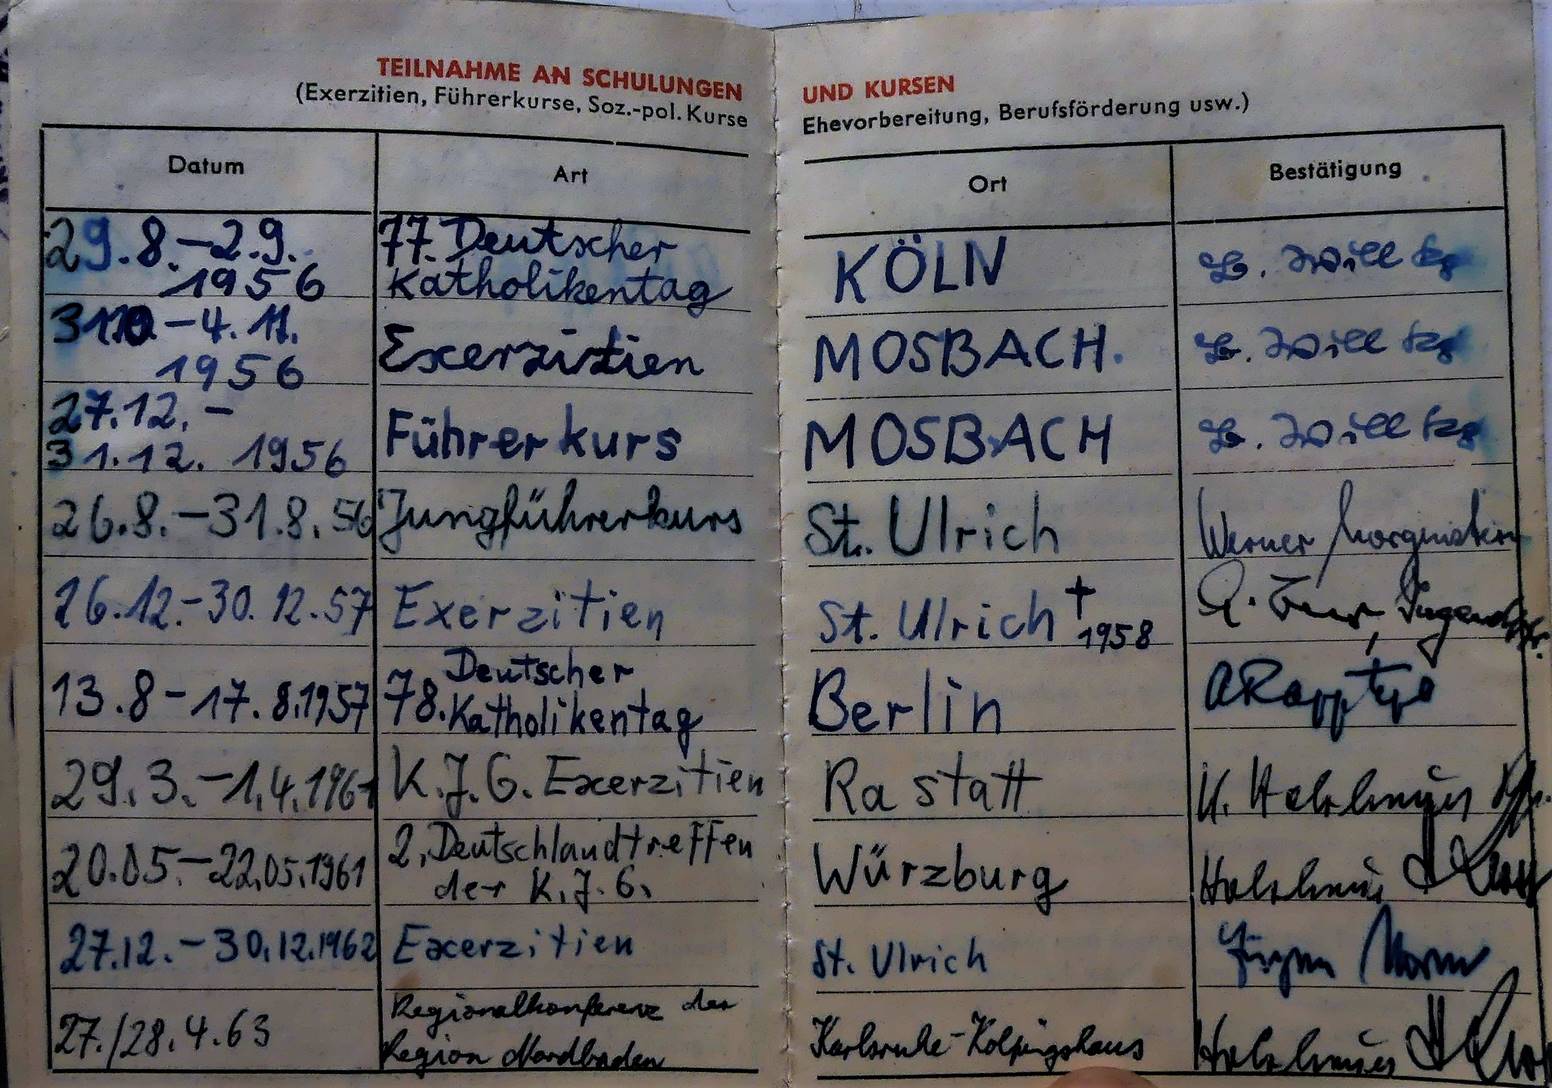 TEILNAHME AN SCHULUNGEN UND KURSEN
(Exerzitien, Führerkurse, Soz.-pol. Kurse Ehevorbereitung, Berufsförderung usw.)
Datum Art Ort Bestätigung
29.8.-2.9. 1956 77. Deutscher Katholikentag KÖLN
31.10.-4.11. 1956 Exerzitien MOSBACH.
27.12.- 31.12. 1956 Führerkurs MOSBACH
26.8.-31.8.56 Jungführerkurs St. Ulrich Werner Morgenstern
26.12.-30.12.57 Exerzitien St. Ulrich † 1958
13.8-17.8.1957 78. Deutscher Katholikentag Berlin
29.3.-1.4.1961 K.J.G. Exerzitien Rastatt
20.05.-22.05.1961 2. Deutschlandtreffen der K.J.G. Würzburg
27.12.-30.12.1962 Exerzitien St. Ulrich Jürgen
27./28.4.63 Regionalkonferenz der Region Nordbaden Karlsruhe-Kolpingshaus